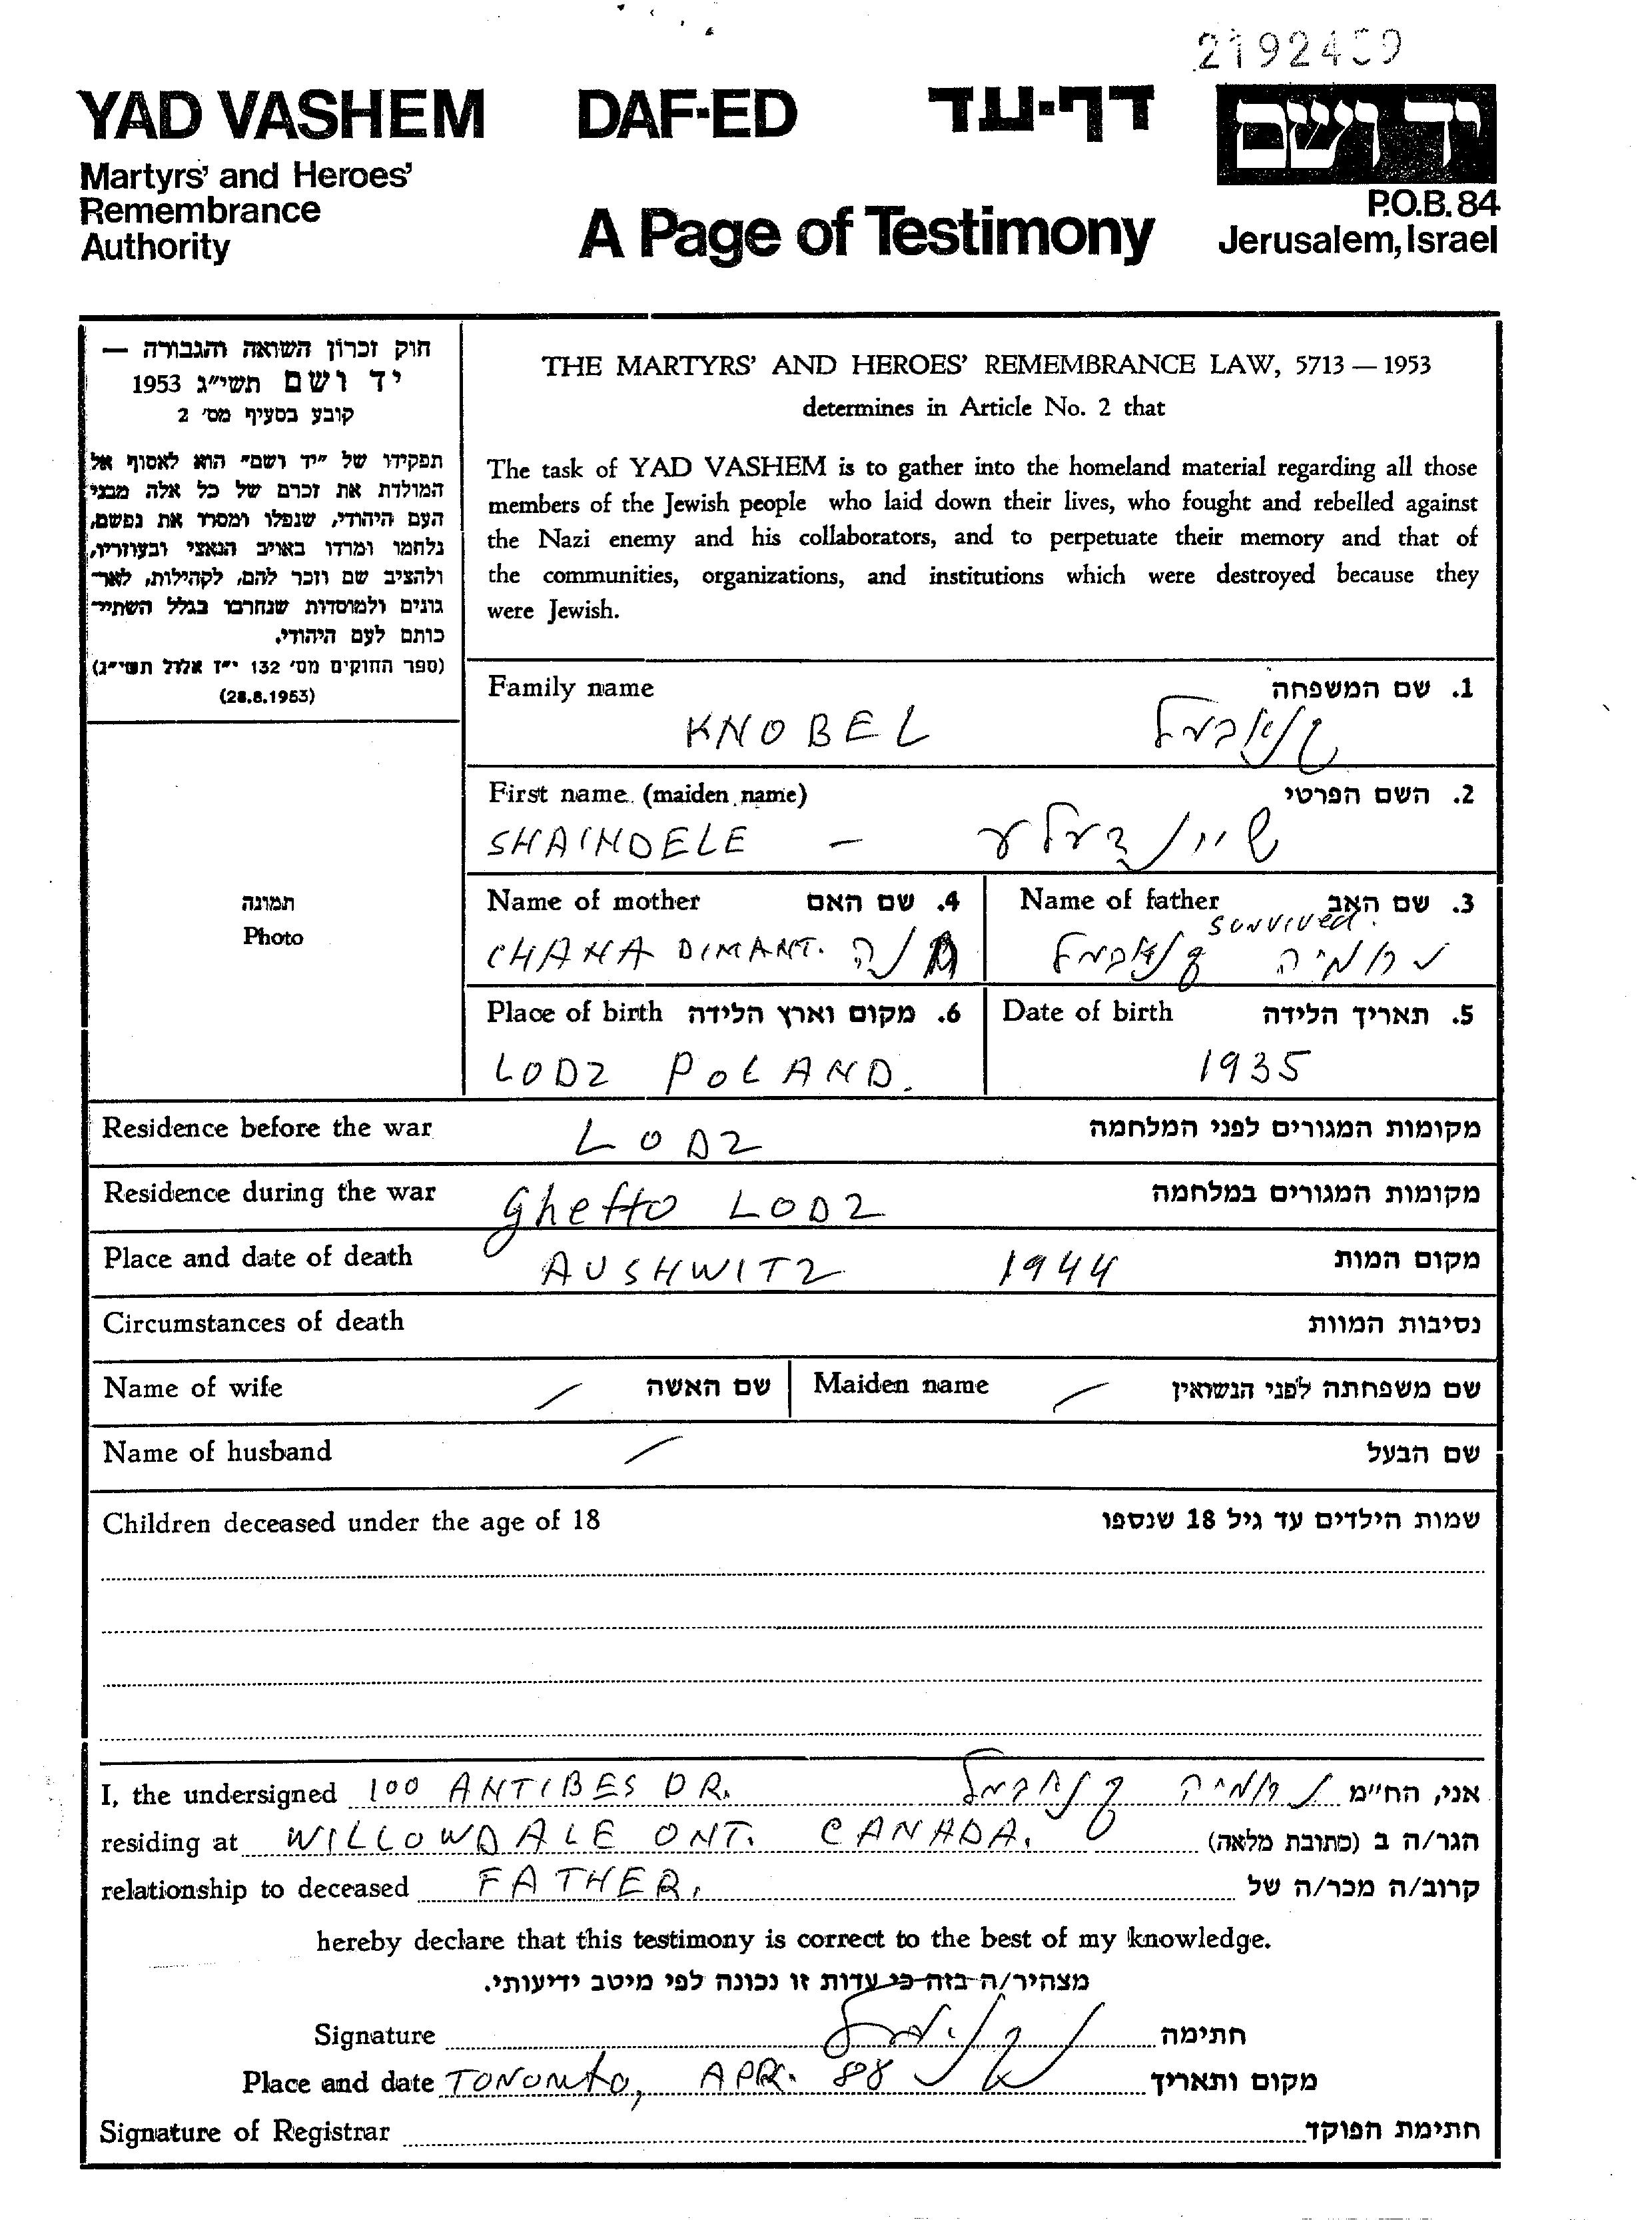 YAD VASHEM DAF-ED דף-עד יד ושם
Martyrs' and Heroes'
Remembrance
Authority
A Page of Testimony
P.O.B. 84
Jerusalem, Israel
חוק זכרון השואה והגבורה —
יד ושם תשי"ג 1953
קובע בסעיף מס' 2
תפקידו של "יד ושם" הוא לאסוף אל
המולדת את זכרם של כל אלה מבני
העם היהודי, שנפלו ומסרו את נפשם,
נלחמו ומרדו באויב הנאצי ובעוזריו,
ולהציב שם וזכר להם, לקהילות, לאר־
גונים ולמוסדות שנחרבו בגלל השתיי־
כותם לעם היהודי.
(ספר החוקים מס' 132 י"ז אלול תשי"ג)
(28.8.1953)
THE MARTYRS' AND HEROES' REMEMBRANCE LAW, 5713 — 1953
determines in Article No. 2 that
The task of YAD VASHEM is to gather into the homeland material regarding all those
members of the Jewish people who laid down their lives, who fought and rebelled against
the Nazi enemy and his collaborators, and to perpetuate their memory and that of
the communities, organizations, and institutions which were destroyed because they
were Jewish.
תמונה
Photo
Family name 1. שם המשפחה
KNOBEL קנאבעל
First name (maiden name) 2. השם הפרטי
SHAINDELE – שיינדעלע
Name of mother 4. שם האם
CHANA DIMANT. חנה
Name of father 3. שם האב
survived.
נחמיה קנאבעל
Place of birth 6. מקום וארץ הלידה
LODZ POLAND.
Date of birth 5. תאריך הלידה
1935
Residence before the war LODZ מקומות המגורים לפני המלחמה
Residence during the war Ghetto LODZ מקומות המגורים במלחמה
Place and date of death AUSHWITZ 1944 מקום המות
Circumstances of death נסיבות המוות
Name of wife / שם האשה Maiden name / שם משפחתה לפני הנשואין
Name of husband / שם הבעל
Children deceased under the age of 18 שמות הילדים עד גיל 18 שנספו
I, the undersigned 100 ANTIBES DR. נחמיה קנאבעל אני, הח"מ
residing at WILLOWDALE ONT. CANADA. הגר/ה ב (כתובת מלאה)
relationship to deceased FATHER. קרוב/ה מכר/ה של
hereby declare that this testimony is correct to the best of my knowledge.
מצהיר/ה בזה כי עדות זו נכונה לפי מיטב ידיעותי.
Signature חתימה
Place and date TORONTO, APR. 88 מקום ותאריך
Signature of Registrar חתימת הפוקד